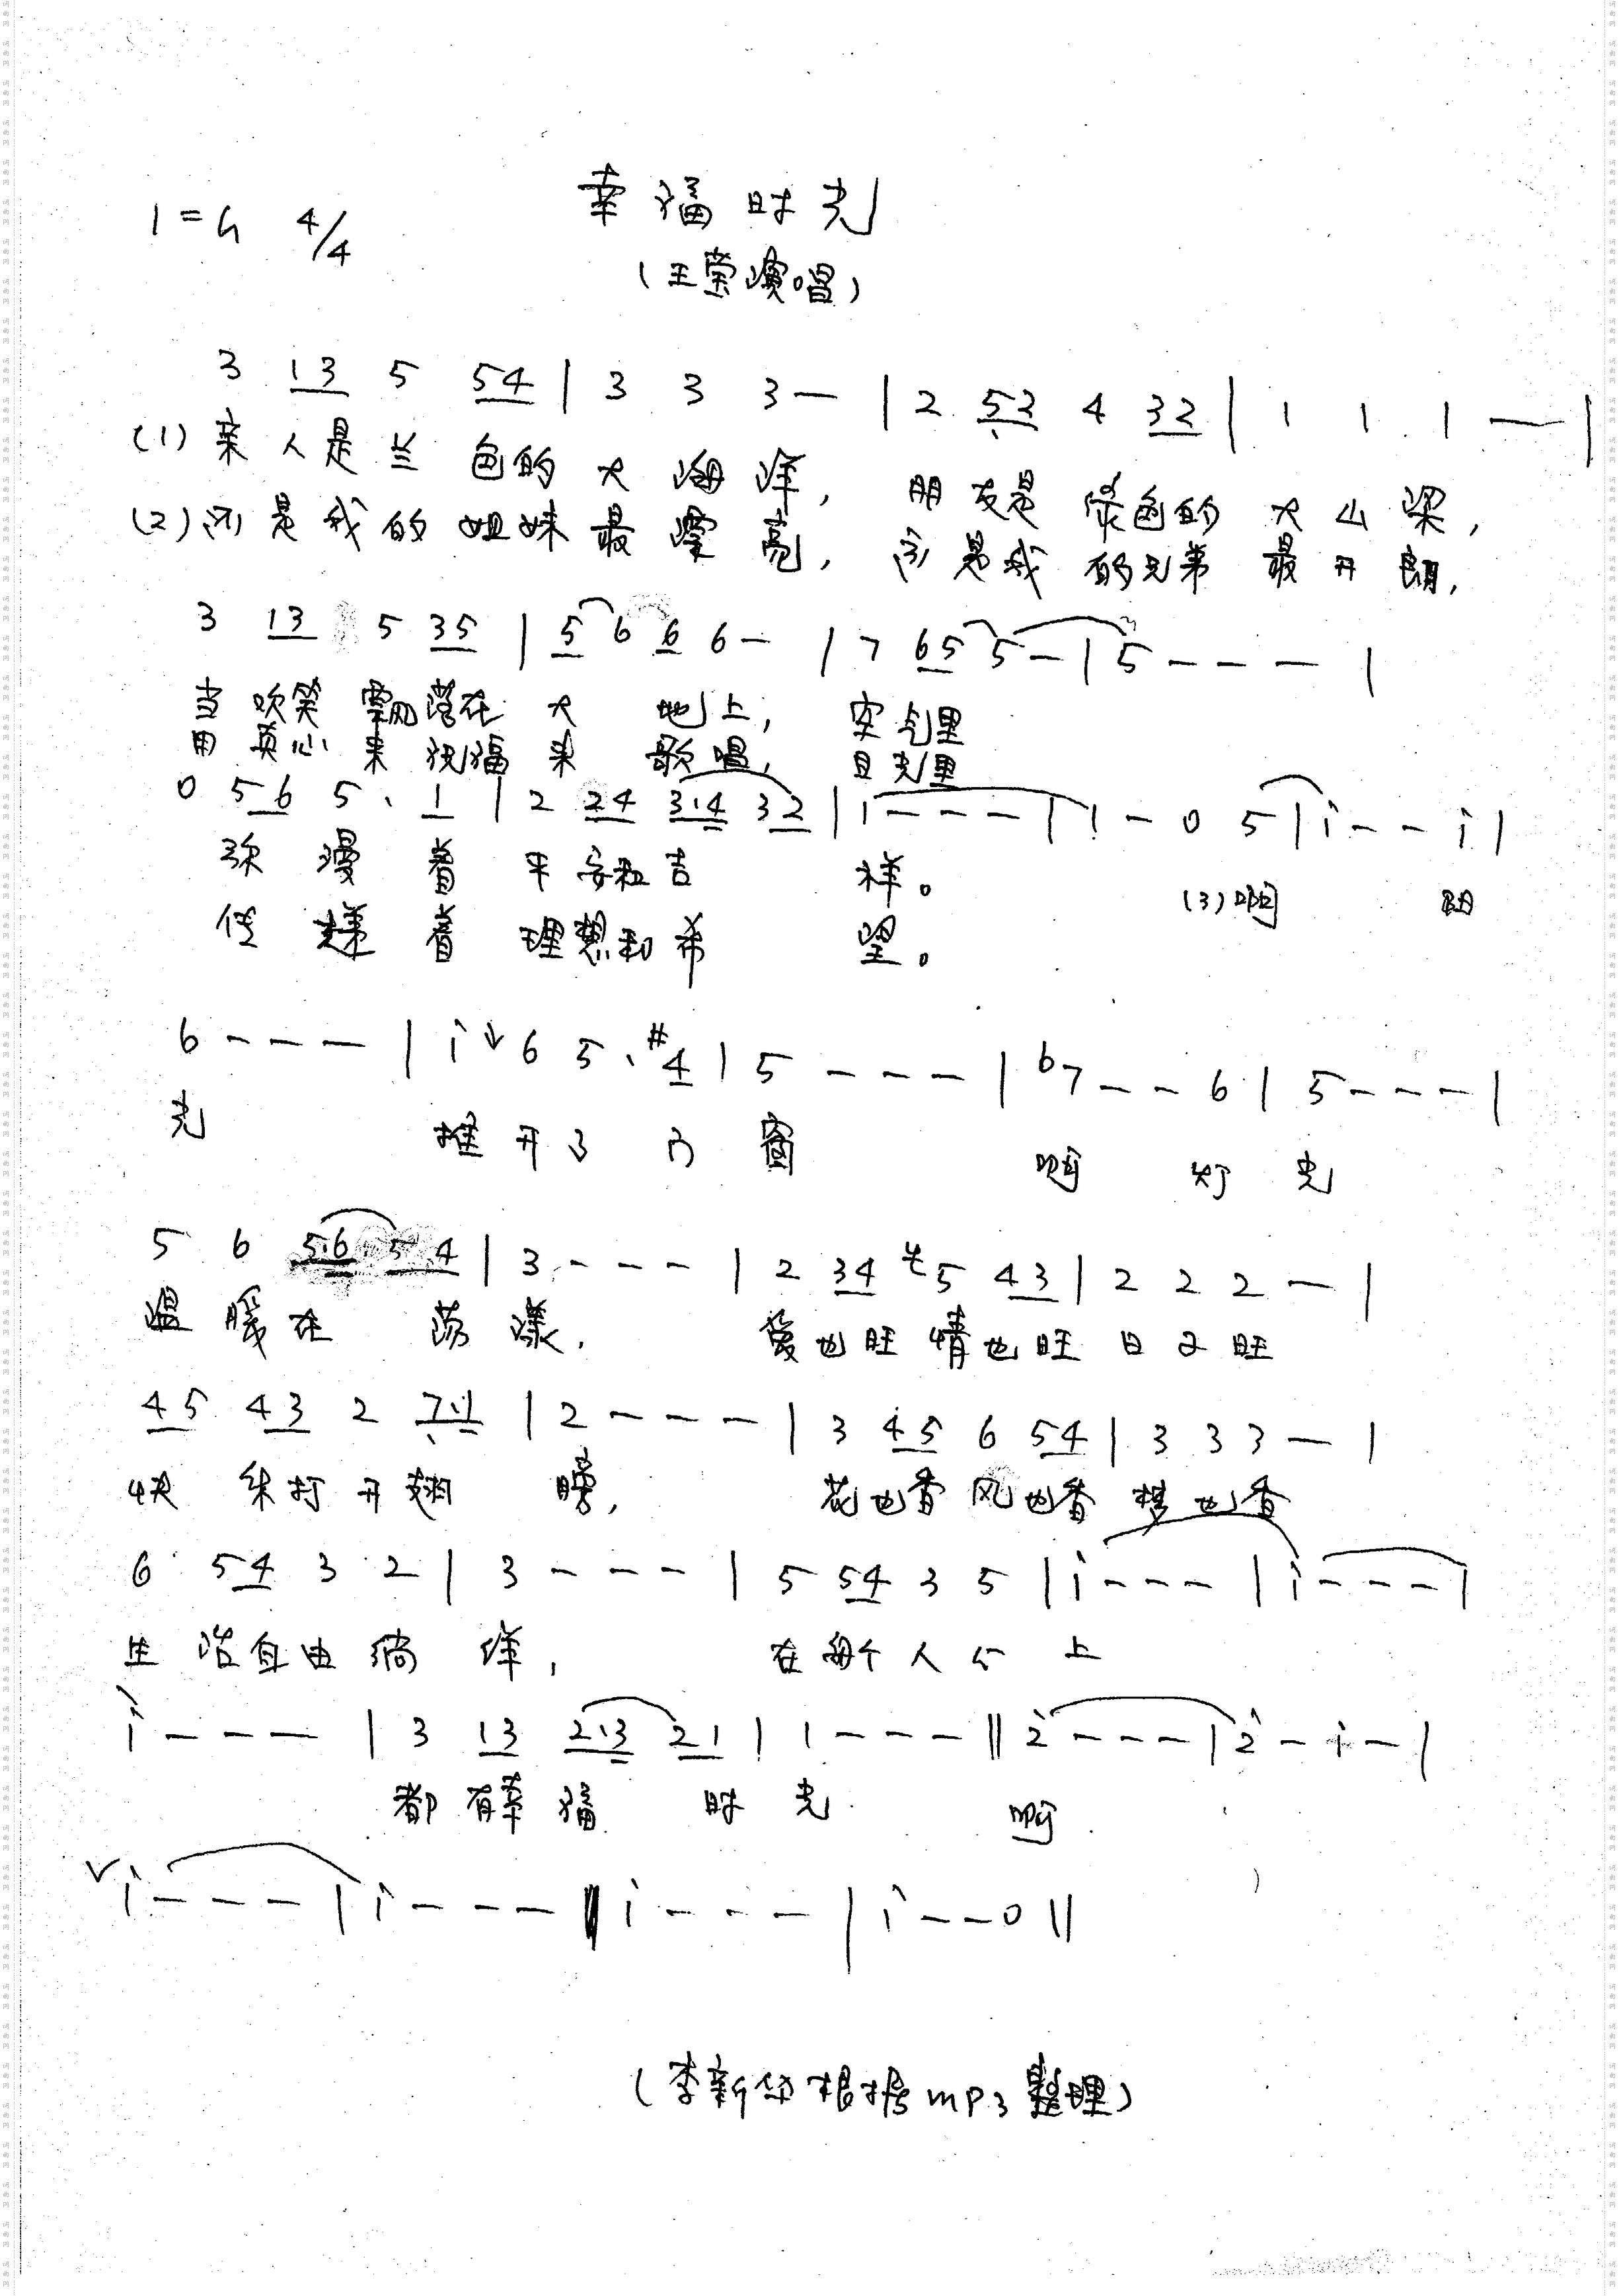 幸福时光
1=G 4/4
(王莹演唱)
3 13 5 54 | 3 3 3 — | 2 52 4 32 | 1 1 1 — |
(1) 亲人是兰色的大海洋, 朋友是绿色的大山梁,
(2) 问是我的姐妹最漂亮, 问是我的兄弟最开朗,
3 13 5 35 | 5 6 6 6 — | 7 65 5 — | 5 — — — |
当欢笑飘落在大地上, 空气里
用真心来祝福来歌唱, 目光里
0 56 5 · 1 | 2 24 3·4 32 | 1 — — — | 1 — 0 5 | i — — i |
弥漫着平安和吉祥。 (3) 啊 阳
传递着理想和希望。
6 — — — | i 6 5 · #4 | 5 — — — | b7 — — 6 | 5 — — — |
光 推开了门窗 啊 灯光
5 6 5·6 54 | 3 — — — | 2 34 5 43 | 2 2 2 — |
温暖在荡漾, 爱也旺情也旺日子旺
45 43 2 7·1 | 2 — — — | 3 45 6 54 | 3 3 3 — |
快来打开翅膀, 花也香风也香梦也香
6 54 3 2 | 3 — — — | 5 54 3 5 | i — — — | i — — — |
生活自由徜徉, 在每个人心上
i — — — | 3 13 2·3 21 | 1 — — — ‖ 2 — — — | 2 — i — |
都有幸福时光 啊
∨ i — — — | i — — — ‖ i — — — | i — — 0 ‖
(李新华根据mp3整理)